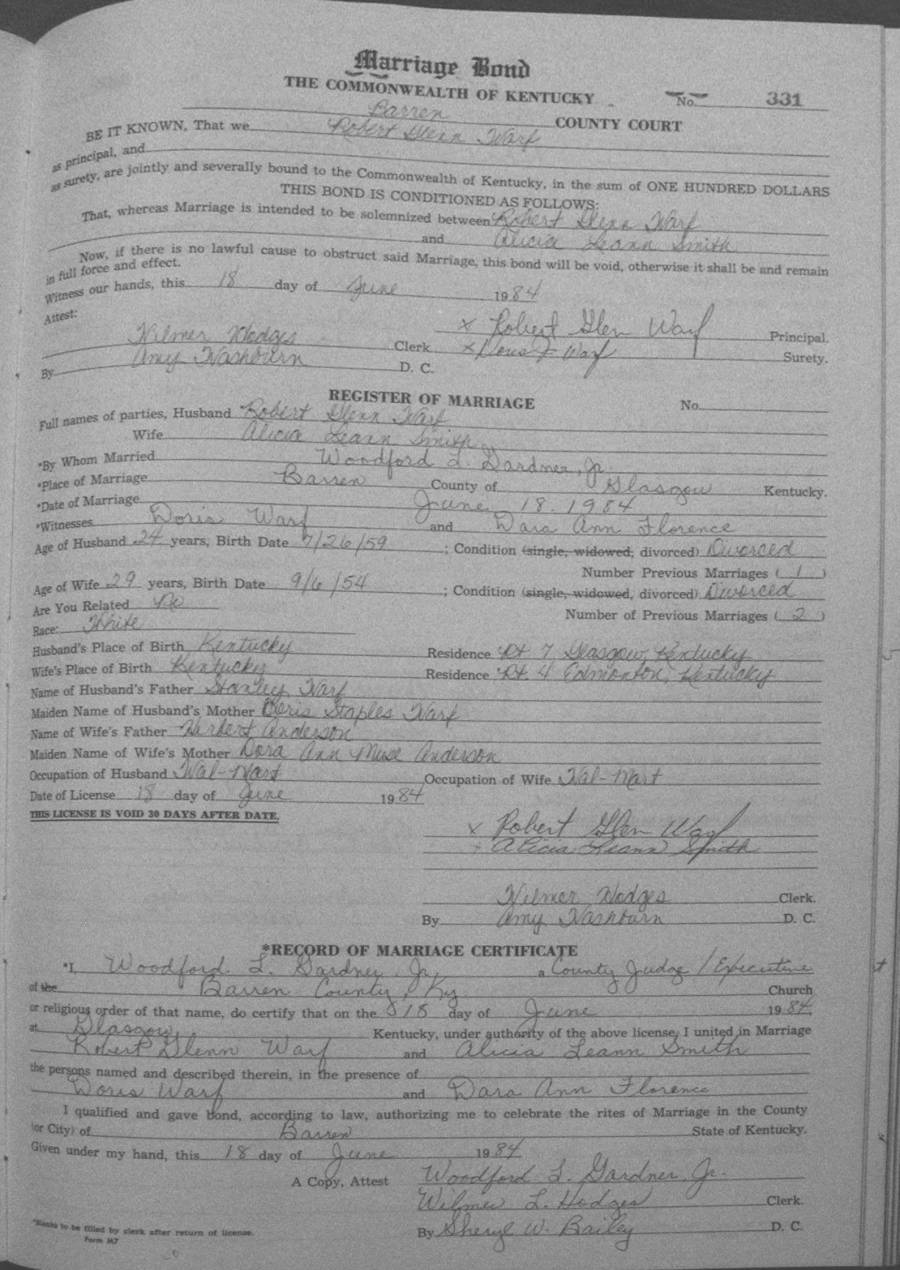 Marriage Bond
THE COMMONWEALTH OF KENTUCKY No. 331
Barren COUNTY COURT
BE IT KNOWN, That we Robert Glenn Warf
as principal, and
as surety, are jointly and severally bound to the Commonwealth of Kentucky, in the sum of ONE HUNDRED DOLLARS
THIS BOND IS CONDITIONED AS FOLLOWS:
That, whereas Marriage is intended to be solemnized between Robert Glenn Warf
and Alicia Leann Smith
Now, if there is no lawful cause to obstruct said Marriage, this bond will be void, otherwise it shall be and remain
in full force and effect.
Witness our hands, this 18 day of June 1984
Attest: x Robert Glen Warf Principal.
Wilmer Hodges Clerk x Doris F Warf Surety.
By Amy Washburn D. C.
REGISTER OF MARRIAGE No.
Full names of parties, Husband Robert Glenn Warf
Wife Alicia Leann Smith
*By Whom Married Woodford L. Gardner, Jr.
*Place of Marriage Barren County of Glasgow Kentucky.
*Date of Marriage June 18, 1984
*Witnesses Doris Warf and Dara Ann Florence
Age of Husband 24 years, Birth Date 7/26/59 ; Condition (single, widowed, divorced) Divorced
Number Previous Marriages ( 1 )
Age of Wife 29 years, Birth Date 9/6/54 ; Condition (single, widowed, divorced) Divorced
Are You Related No Number of Previous Marriages ( 2 )
Race: White
Husband's Place of Birth Kentucky Residence Rt 7 Glasgow, Kentucky
Wife's Place of Birth Kentucky Residence Rt. 4 Edmonton, Kentucky
Name of Husband's Father Stanley Warf
Maiden Name of Husband's Mother Doris Staples Warf
Name of Wife's Father Herbert Anderson
Maiden Name of Wife's Mother Dora Ann Muse Anderson
Occupation of Husband Wal-Mart Occupation of Wife Wal-Mart
Date of License 18 day of June 1984
THIS LICENSE IS VOID 30 DAYS AFTER DATE.
x Robert Glen Warf
Alicia Leann Smith
Wilmer Hodges Clerk.
By Amy Washburn D. C.
*RECORD OF MARRIAGE CERTIFICATE
*I, Woodford L. Gardner Jr, a County Judge / Executive
of the Barren County, Ky. Church
or religious order of that name, do certify that on the 18 day of June 1984
at Glasgow, Kentucky, under authority of the above license, I united in Marriage
Robert Glenn Warf and Alicia Leann Smith
the persons named and described therein, in the presence of
Doris Warf and Dara Ann Florence
I qualified and gave bond, according to law, authorizing me to celebrate the rites of Marriage in the County
(or City) of Barren State of Kentucky.
Given under my hand, this 18 day of June 1984
A Copy, Attest Woodford L. Gardner, Jr.
Wilmer L. Hodges Clerk.
By Sheryl W. Bailey D. C.
*Blanks to be filled by clerk after return of license.
Form 367